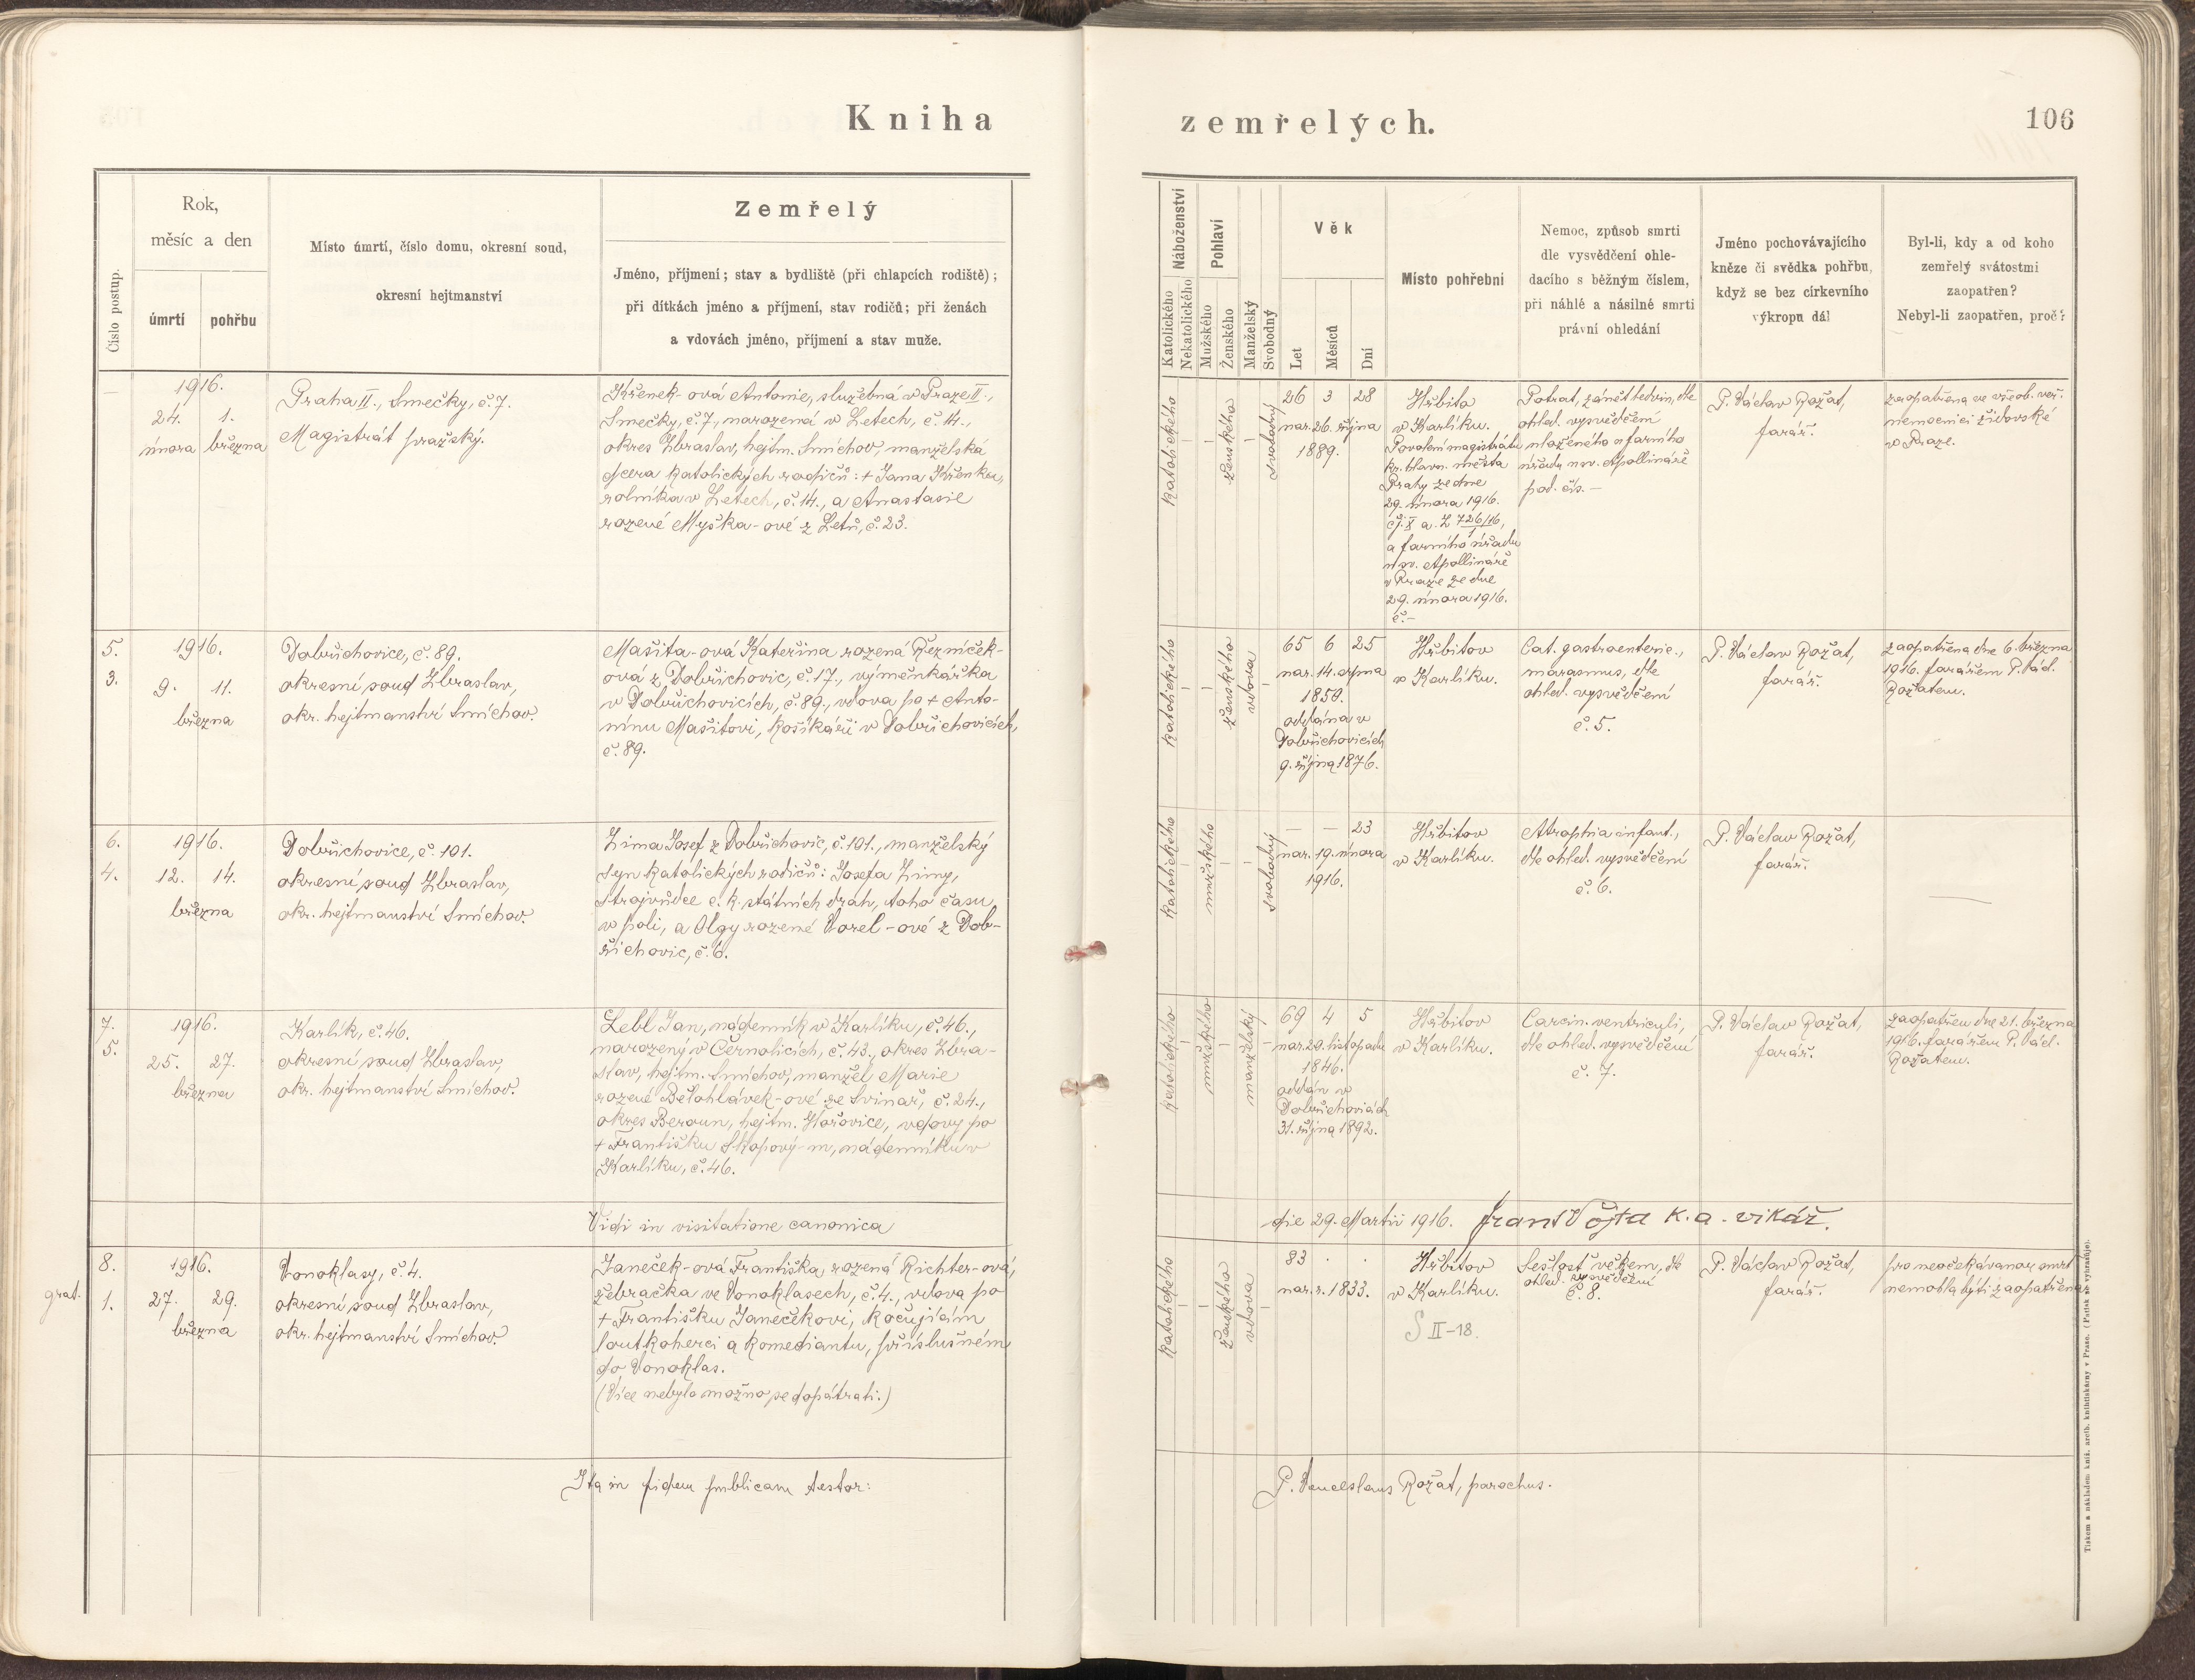 Kniha zemřelých.
106
Číslo postup.
Rok,
měsíc a den
úmrtí
pohřbu
Místo úmrtí, číslo domu, okresní soud,
okresní hejtmanství
Zemřelý
Jméno, příjmení; stav a bydliště (při chlapcích rodiště);
při dítkách jméno a příjmení, stav rodičů; při ženách
a vdovách jméno, příjmení a stav muže.
Náboženství
Katolického
Nekatolického
Pohlaví
Mužského
Ženského
Manželský
Svobodný
Věk
Let
Měsíců
Dní
Místo pohřební
Nemoc, způsob smrti
dle vysvědčení ohle-
dacího s běžným číslem,
při náhlé a násilné smrti
právní ohledání
Jméno pochovávajícího
kněze či svědka pohřbu,
když se bez církevního
výkropu dál
Byl-li, kdy a od koho
zemřelý svátostmi
zaopatřen?
Nebyl-li zaopatřen, proč?
—
1916.
24. 1.
února března
Praha II., Smečky, č. 7.
Magistrát pražský.
Křenek-ová Antonie, služebná v Praze II.,
Smečky, č. 7, narozená v Letech, č. 14.,
okres Zbraslav, hejtm. Smíchov, manželská
dcera katolických rodičů: + Jana Křenka,
rolníka v Letech, č. 14., a Anastasie
rozené Myška-ové z Letů, č. 23.
katolického
ženského
svobodný
26 3 28
nar. 26. října
1889.
Hřbitov
v Karlíku.
Povolení magistrátu
kr. hlavn. města
Prahy ze dne
29. února 1916.
čj. X a. Z 726/16,
a farního úřadu
u sv. Apollináře
v Praze ze dne
29. února 1916.
č. –
Potrat, zánět ledvin, dle
ohled. vysvědčení
uloženého u farního
úřadu u sv. Apollináře
pod. čís. —
P. Václav Rožat,
farář.
zaopatřena ve všeob. veř.
nemocnici židovské
v Praze.
5.
3.
1916.
9. 11.
března
Dobřichovice, č. 89.
okresní soud Zbraslav,
okr. hejtmanství Smíchov.
Mašita-ová Kateřina rozená Řezníček-
ová z Dobřichovic, č. 17., výměnkářka
v Dobřichovicích, č. 89., vdova po + Anto-
nínu Mašitovi, košíkáři v Dobřichovicích,
č. 89.
katolického
ženského
vdova
65 6 25
nar. 14. srpna
1850.
oddána v
Dobřichovicích
9. října 1876.
Hřbitov
v Karlíku.
Cat. gastroenteric.,
marasmus, dle
ohled. vysvědčení
č. 5.
P. Václav Rožat,
farář.
zaopatřena dne 6. března
1916. farářem P. Václ.
Rožatem.
6.
4.
1916.
12. 14.
března
Dobřichovice, č. 101.
okresní soud Zbraslav,
okr. hejtmanství Smíchov.
Zima Josef z Dobřichovic, č. 101., manželský
syn katolických rodičů: Josefa Zimy,
strojvůdce c. k. státních drah, toho času
v poli, a Olgy rozené Vorel-ové z Dob-
řichovic, č. 6.
katolického
mužského
svobodný
— — 23
nar. 19. února
1916.
Hřbitov
v Karlíku.
Atrophia infant.,
dle ohled. vysvědčení
č. 6.
P. Václav Rožat,
farář.
—
7.
5.
1916.
25. 27.
března
Karlík, č. 46.
okresní soud Zbraslav,
okr. hejtmanství Smíchov.
Lebl Jan, nádenník v Karlíku, č. 46.,
narozený v Černolicích, č. 43., okres Zbra-
slav, hejtm. Smíchov, manžel Marie
rozené Bělohlávek-ové ze Svinař, č. 24.,
okres Beroun, hejtm. Hořovice, vdovy po
+ Františku Skopový-m, nádenníku v
Karlíku, č. 46.
katolického
mužského
manželský
69 4 5
nar. 20. listopadu
1846.
oddán v
Dobřichovicích
31. října 1892.
Hřbitov
v Karlíku.
Carcin. ventriculi,
dle ohled. vysvědčení
č. 7.
P. Václav Rožat,
farář.
zaopatřen dne 21. března
1916. farářem P. Václ.
Rožatem.
Vidi in visitatione canonica die 29. Martii 1916. Frant Vojta k. a. vikář.
grat.
8.
1.
1916.
27. 29.
března
Vonoklasy, č. 4.
okresní soud Zbraslav,
okr. hejtmanství Smíchov.
Janeček-ová Františka rozená Richter-ová,
žebračka ve Vonoklasech, č. 4., vdova po
+ Františku Janečkovi, kočujícím
loutkoherci a komediantu, příslušném
do Vonoklas.
(Více nebylo možno se dopátrati.)
katolického
ženského
vdova
83 . .
nar. r. 1833.
Hřbitov
v Karlíku.
S II-18.
Sešlost věkem, dle
ohled. vysvědčení
č. 8.
P. Václav Rožat,
farář.
pro neočekávanou smrt
nemohla býti zaopatřena
Ita in fidem publicam testor: P. Venceslaus Rožat, parochus.
Tiskem a nákladem kníž. arcib. knihtiskárny v Praze. (Patisk se vyhražuje).